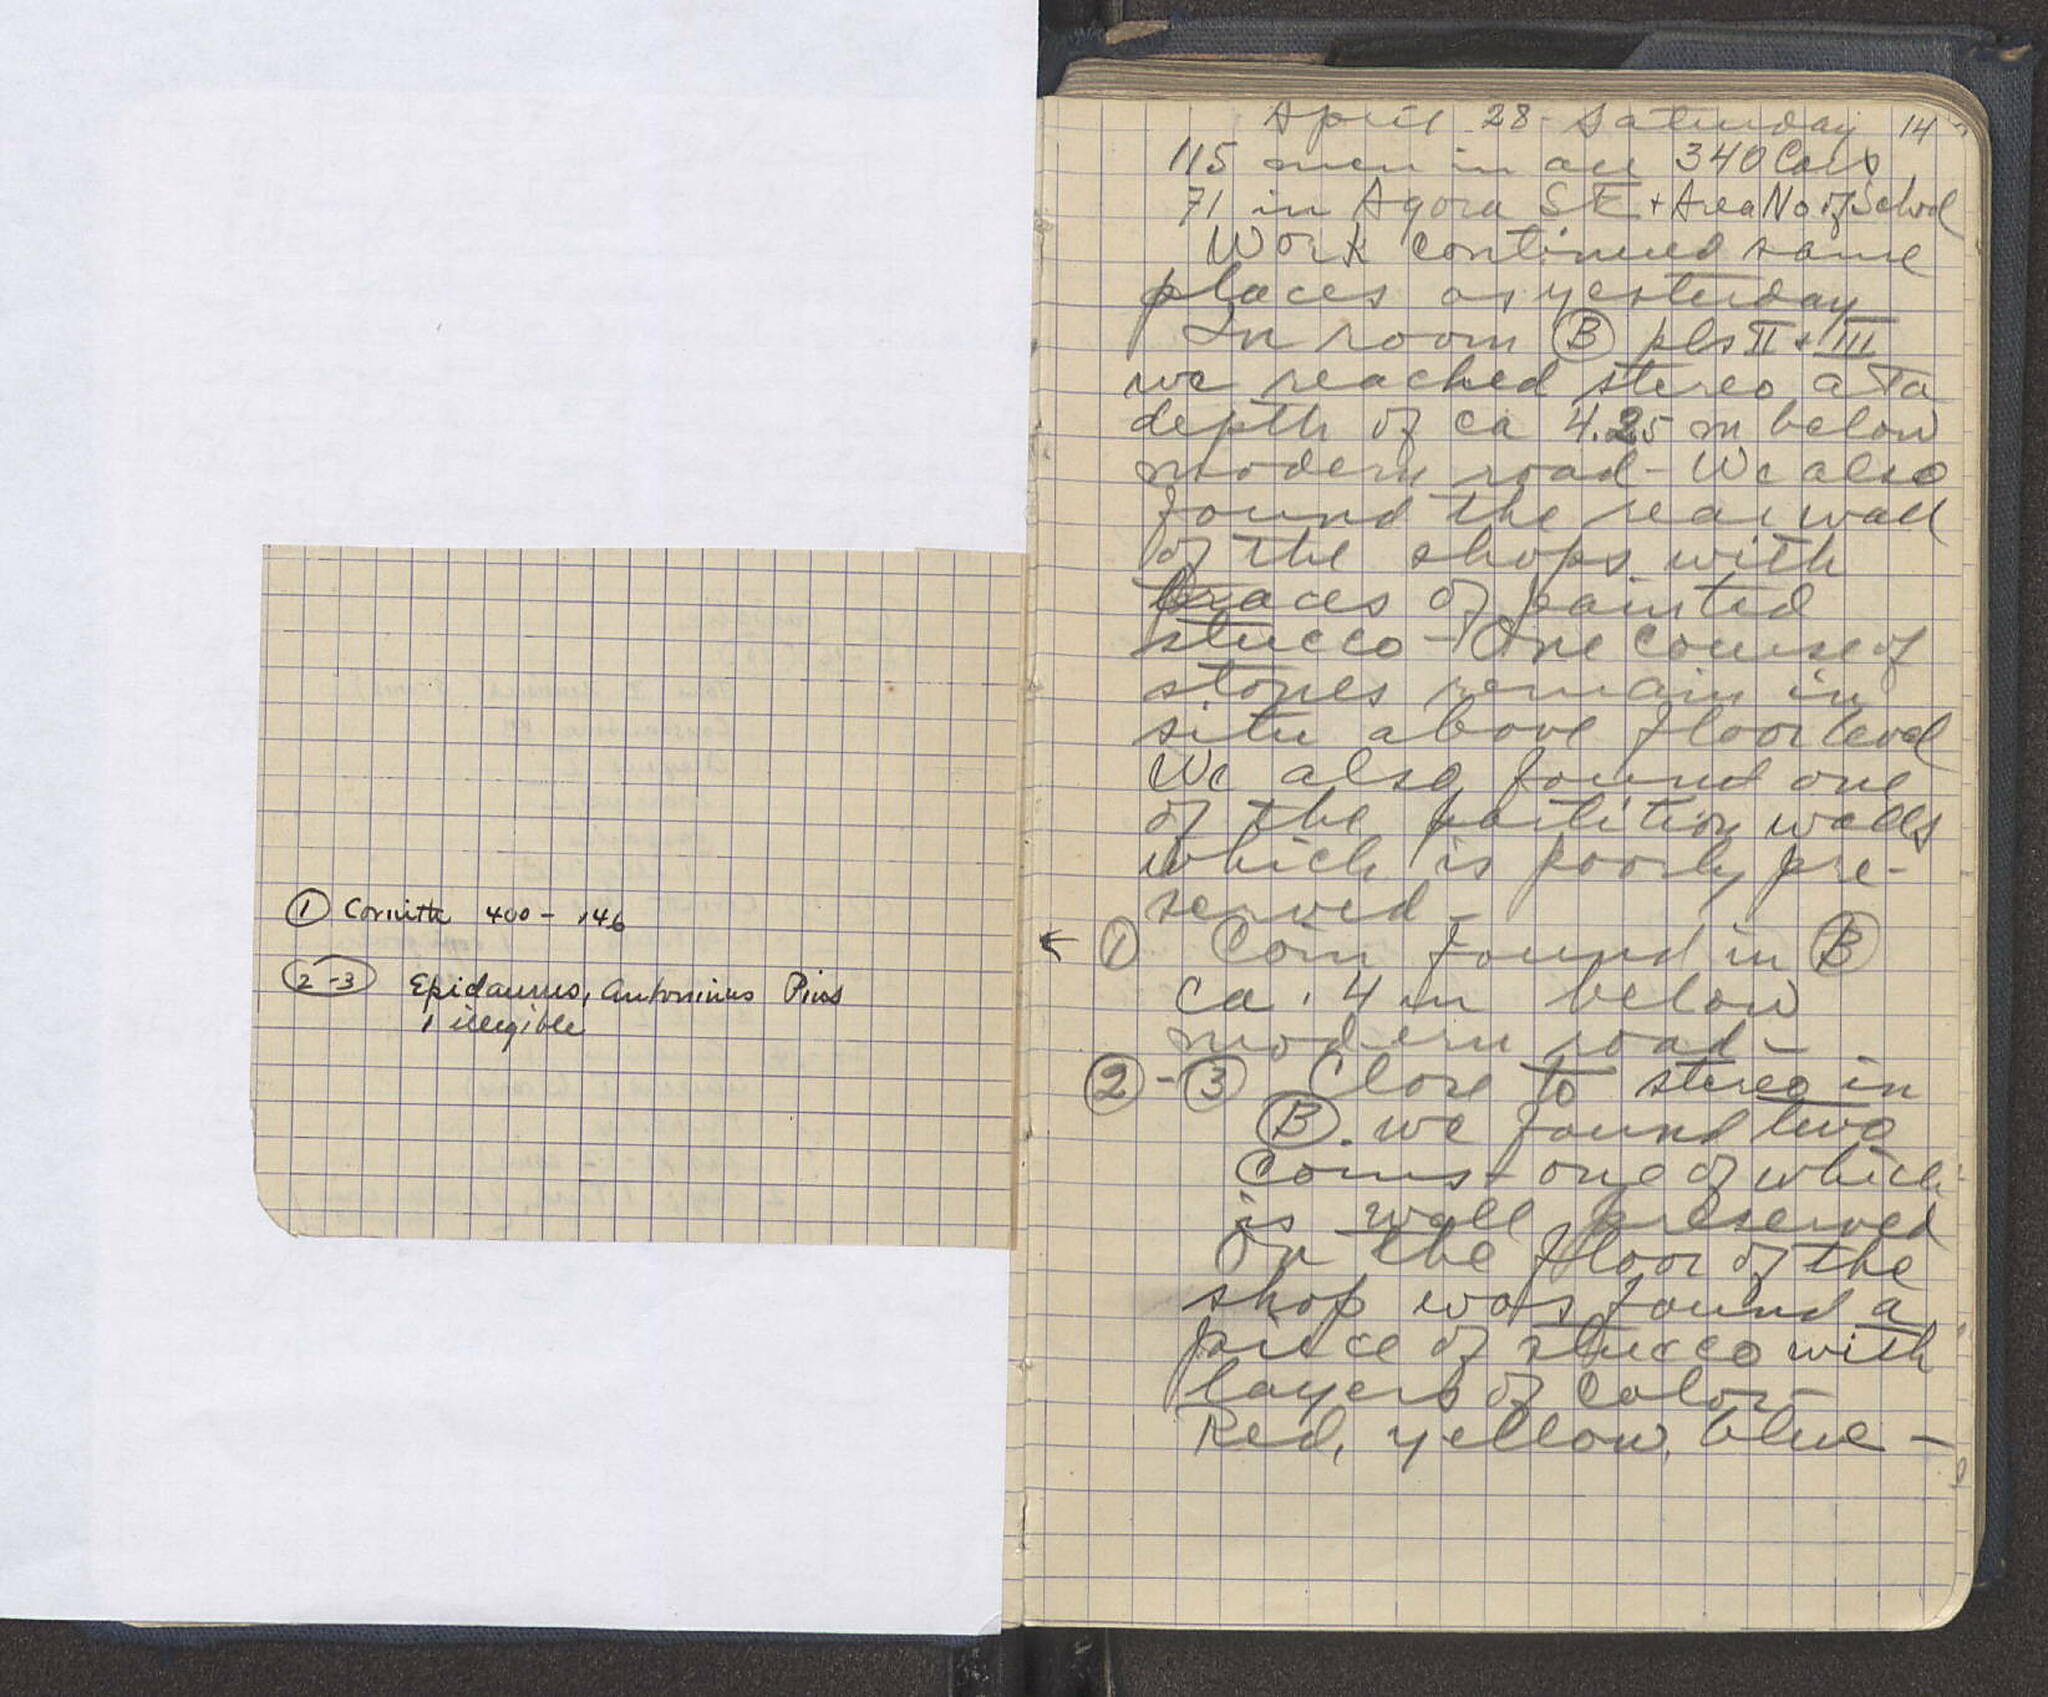 ① Corinth 400 - 146
②-③ Epidaurus, Antoninus Pius
1 illegible
April 28 - Saturday 14
115 men in all 340 Cars
71 in Agora SE + Area No of School
Work continued same
places as yesterday
In room Ⓑ pls II + III
we reached stereo at a
depth of ca 4.25 m below
modern road - We also
found the rear wall
of the shops with
traces of painted
stucco - One course of
stones remain in
situ above floor level
We also found one
of the partition walls
which is poorly pre-
served -
← ① Coin found in Ⓑ
ca. 4 m below
modern road -
② - ③ Close to stereo in
Ⓑ. we found two
coins - one of which
is well preserved
On the floor of the
shop was found a
piece of stucco with
layers of color -
Red, yellow, blue -